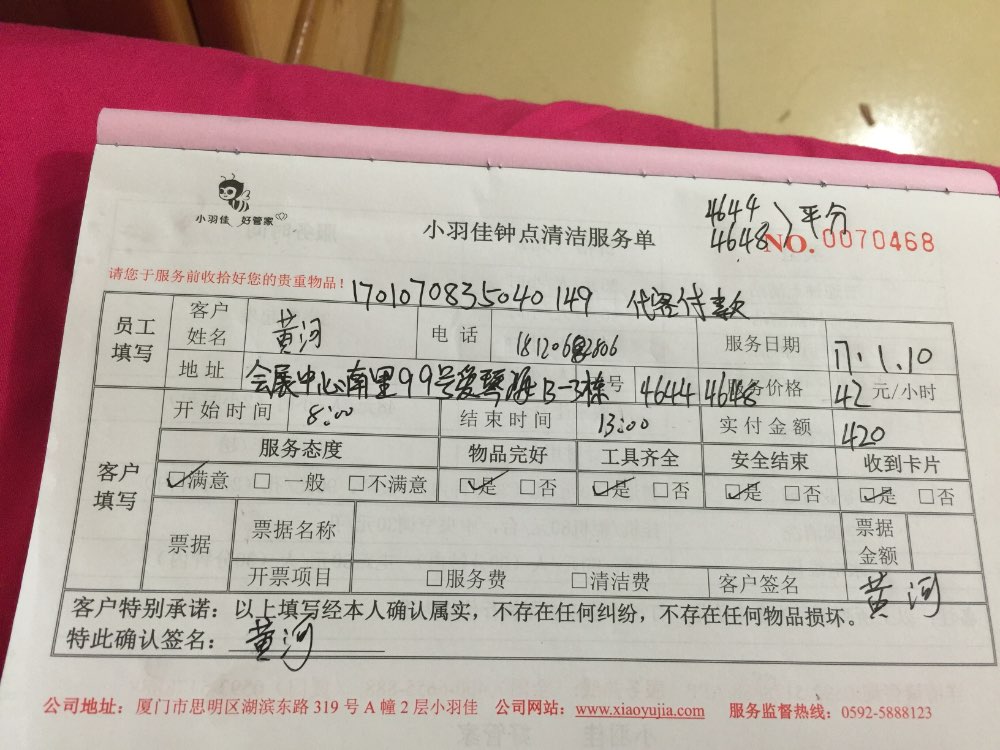 4644
4648 平分
小羽佳 好管家
小羽佳钟点清洁服务单
NO. 0070468
请您于服务前收拾好您的贵重物品！
1701070835040149 代客付款
员工填写 客户姓名 黄河 电话 服务日期 17.1.10
地址 会展中心南里99号爱琴海B-3栋 号 4644 4648 服务价格 42 元/小时
开始时间 8:00 结束时间 13:00 实付金额 420
客户填写 服务态度 物品完好 工具齐全 安全结束 收到卡片
☑满意 □一般 □不满意 ☑是 □否 ☑是 □否 ☑是 □否 ☑是 □否
票据 票据名称 票据金额
开票项目 □服务费 □清洁费 客户签名 黄河
客户特别承诺：以上填写经本人确认属实，不存在任何纠纷，不存在任何物品损坏。
特此确认签名：黄河
公司地址：厦门市思明区湖滨东路 319 号 A 幢 2 层小羽佳 公司网站：www.xiaoyujia.com 服务监督热线：0592-5888123